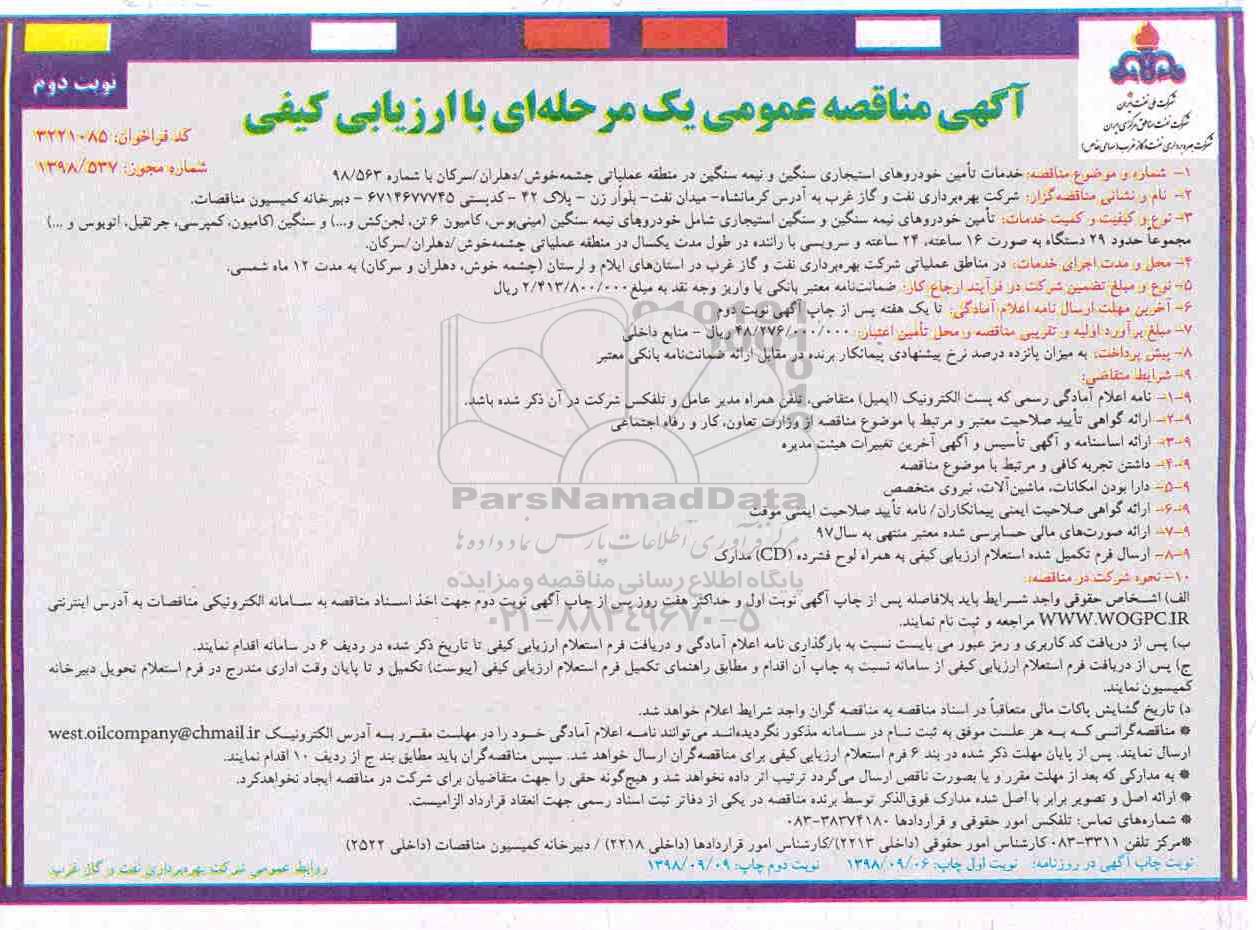 شرکت ملی نفت ایران
شرکت نفت مناطق مرکزی ایران
شرکت بهره برداری نفت و گاز غرب (سهامی خاص)
نوبت دوم
آگهی مناقصه عمومی یک مرحله‌ای با ارزیابی کیفی
کد فراخوان: ۳۲۲۱۰۸۵
شماره مجوز: ۱۳۹۸/۵۳۷
۱- شماره و موضوع مناقصه: خدمات تأمین خودروهای استیجاری سنگین و نیمه سنگین در منطقه عملیاتی چشمه‌خوش/دهلران/سرکان با شماره ۹۸/۵۶۳
۲- نام و نشانی مناقصه‌گزار: شرکت بهره‌برداری نفت و گاز غرب به آدرس کرمانشاه- میدان نفت- بلوار زن - پلاک ۴۲ -کدپستی ۶۷۱۴۶۷۷۷۴۵ - دبیرخانه کمیسیون مناقصات.
۳- نوع و کیفیت و کمیت خدمات: تأمین خودروهای نیمه سنگین و سنگین استیجاری شامل خودروهای نیمه سنگین (مینی‌بوس، کامیون ۶ تن، لجن‌کش و...) و سنگین (کامیون، کمپرسی، جرثقیل، اتوبوس و ...)
مجموعاً حدود ۲۹ دستگاه به صورت ۱۶ ساعته، ۲۴ ساعته و سرویسی با راننده در طول مدت یکسال در منطقه عملیاتی چشمه‌خوش/دهلران/سرکان.
۴- محل و مدت اجرای خدمات: در مناطق عملیاتی شرکت بهره‌برداری نفت و گاز غرب در استان‌های ایلام و لرستان (چشمه خوش، دهلران و سرکان) به مدت ۱۲ ماه شمسی.
۵- نوع و مبلغ تضمین شرکت در فرآیند ارجاع کار: ضمانت‌نامه معتبر بانکی یا واریز وجه نقد به مبلغ ۲/۴۱۳/۸۰۰/۰۰۰ ریال
۶- آخرین مهلت ارسال نامه اعلام آمادگی: تا یک هفته پس از چاپ آگهی نوبت دوم
۷- مبلغ برآورد اولیه و تقریبی مناقصه و محل تأمین اعتبار: ۴۸/۲۷۶/۰۰۰/۰۰۰ ریال - منابع داخلی
۸- پیش پرداخت: به میزان پانزده درصد نرخ پیشنهادی پیمانکار برنده در مقابل ارائه ضمانت‌نامه بانکی معتبر
۹- شرایط متقاضی:
۹-۱- نامه اعلام آمادگی رسمی که پست الکترونیک (ایمیل) متقاضی، تلفن همراه مدیر عامل و تلفکس شرکت در آن ذکر شده باشد.
۹-۲- ارائه گواهی تأیید صلاحیت معتبر و مرتبط با موضوع مناقصه از وزارت تعاون، کار و رفاه اجتماعی
۹-۳- ارائه اساسنامه و آگهی تأسیس و آگهی آخرین تغییرات هیئت مدیره
۹-۴- داشتن تجربه کافی و مرتبط با موضوع مناقصه
۹-۵- دارا بودن امکانات، ماشین‌آلات، نیروی متخصص
۹-۶- ارائه گواهی صلاحیت ایمنی پیمانکاران/ نامه تأیید صلاحیت ایمنی موقت
۹-۷- ارائه صورت‌های مالی حسابرسی شده معتبر منتهی به سال ۹۷
۹-۸- ارسال فرم تکمیل شده استعلام ارزیابی کیفی به همراه لوح فشرده (CD) مدارک
ParsNamadData
مرکز فرآوری اطلاعات پارس نماد داده ها
پایگاه اطلاع رسانی مناقصه و مزایده
۰۲۱-۸۸۳۴۹۶۷۰-۵
۱۰- نحوه شرکت در مناقصه:
الف) اشخاص حقوقی واجد شرایط باید بلافاصله پس از چاپ آگهی نوبت اول و حداکثر هفت روز پس از چاپ آگهی نوبت دوم جهت اخذ اسناد مناقصه به سامانه الکترونیکی مناقصات به آدرس اینترنتی
WWW.WOGPC.IR مراجعه و ثبت نام نمایند.
ب) پس از دریافت کد کاربری و رمز عبور می بایست نسبت به بارگذاری نامه اعلام آمادگی و دریافت فرم استعلام ارزیابی کیفی تا تاریخ ذکر شده در ردیف ۶ در سامانه اقدام نمایند.
ج) پس از دریافت فرم استعلام ارزیابی کیفی از سامانه نسبت به چاپ آن اقدام و مطابق راهنمای تکمیل فرم استعلام ارزیابی کیفی (پیوست) تکمیل و تا پایان وقت اداری مندرج در فرم استعلام تحویل دبیرخانه
کمیسیون نمایند.
د) تاریخ گشایش پاکات مالی متعاقباً در اسناد مناقصه به مناقصه گران واجد شرایط اعلام خواهد شد.
* مناقصه‌گرانی که به هر علت موفق به ثبت نام در سامانه مذکور نگردیده‌اند می‌توانند نامه اعلام آمادگی خود را در مهلت مقرر به آدرس الکترونیک west.oilcompany@chmail.ir
ارسال نمایند. پس از پایان مهلت ذکر شده در بند ۶ فرم استعلام ارزیابی کیفی برای مناقصه‌گران ارسال خواهد شد. سپس مناقصه‌گران باید مطابق بند ج از ردیف ۱۰ اقدام نمایند.
* به مدارکی که بعد از مهلت مقرر و یا بصورت ناقص ارسال می‌گردد ترتیب اثر داده نخواهد شد و هیچ‌گونه حقی را جهت متقاضیان برای شرکت در مناقصه ایجاد نخواهدکرد.
* ارائه اصل و تصویر برابر با اصل شده مدارک فوق‌الذکر توسط برنده مناقصه در یکی از دفاتر ثبت اسناد رسمی جهت انعقاد قرارداد الزامیست.
* شماره‌های تماس: تلفکس امور حقوقی و قراردادها ۳۸۳۷۴۱۸۰-۰۸۳
*مرکز تلفن ۳۳۱۱-۰۸۳ کارشناس امور حقوقی (داخلی ۲۲۱۳)/کارشناس امور قراردادها (داخلی ۲۲۱۸) / دبیرخانه کمیسیون مناقصات (داخلی ۲۵۲۲)
نوبت چاپ آگهی در روزنامه: نوبت اول چاپ: ۱۳۹۸/۰۹/۰۶ نوبت دوم چاپ: ۱۳۹۸/۰۹/۰۹
روابط عمومی شرکت بهره‌برداری نفت و گاز غرب